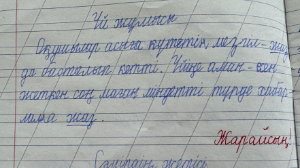 Үй жұмысы
Оқушылар асыға күтетін мезгіл – жаз
да басталып кетті. Үйге аман-есен
жеткен соң маған міндетті түрде хабар-
лама жаз.
Жарайсың
жетісі